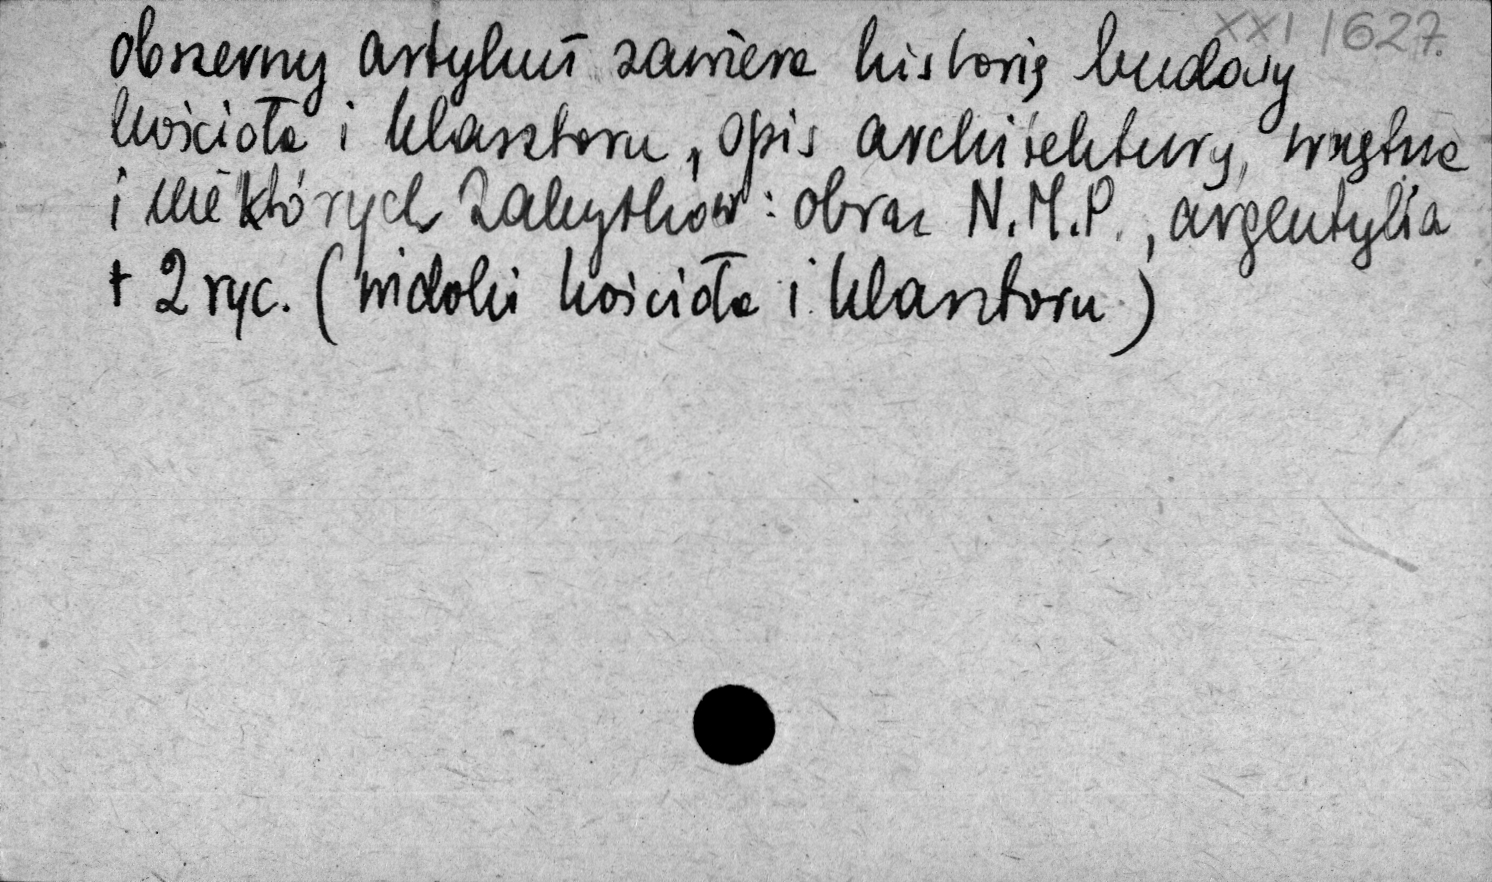 XXI 1627.
obszerny artykuł zawiera historię budowy
kościoła i klasztoru, opis architektury, wnętrza
i niektórych zabytków: obraz N.M.P., argentylia
+ 2 ryc. (widoki kościoła i klasztoru)